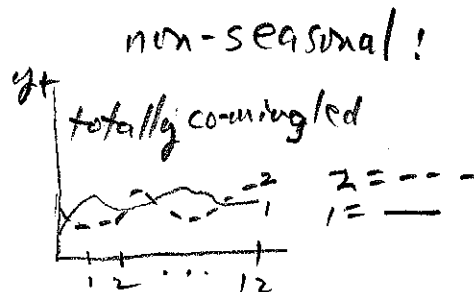 non-seasonal!
yt
totally co-mingled
2 2 = - - -
1 1 = —
1 2 ... 12